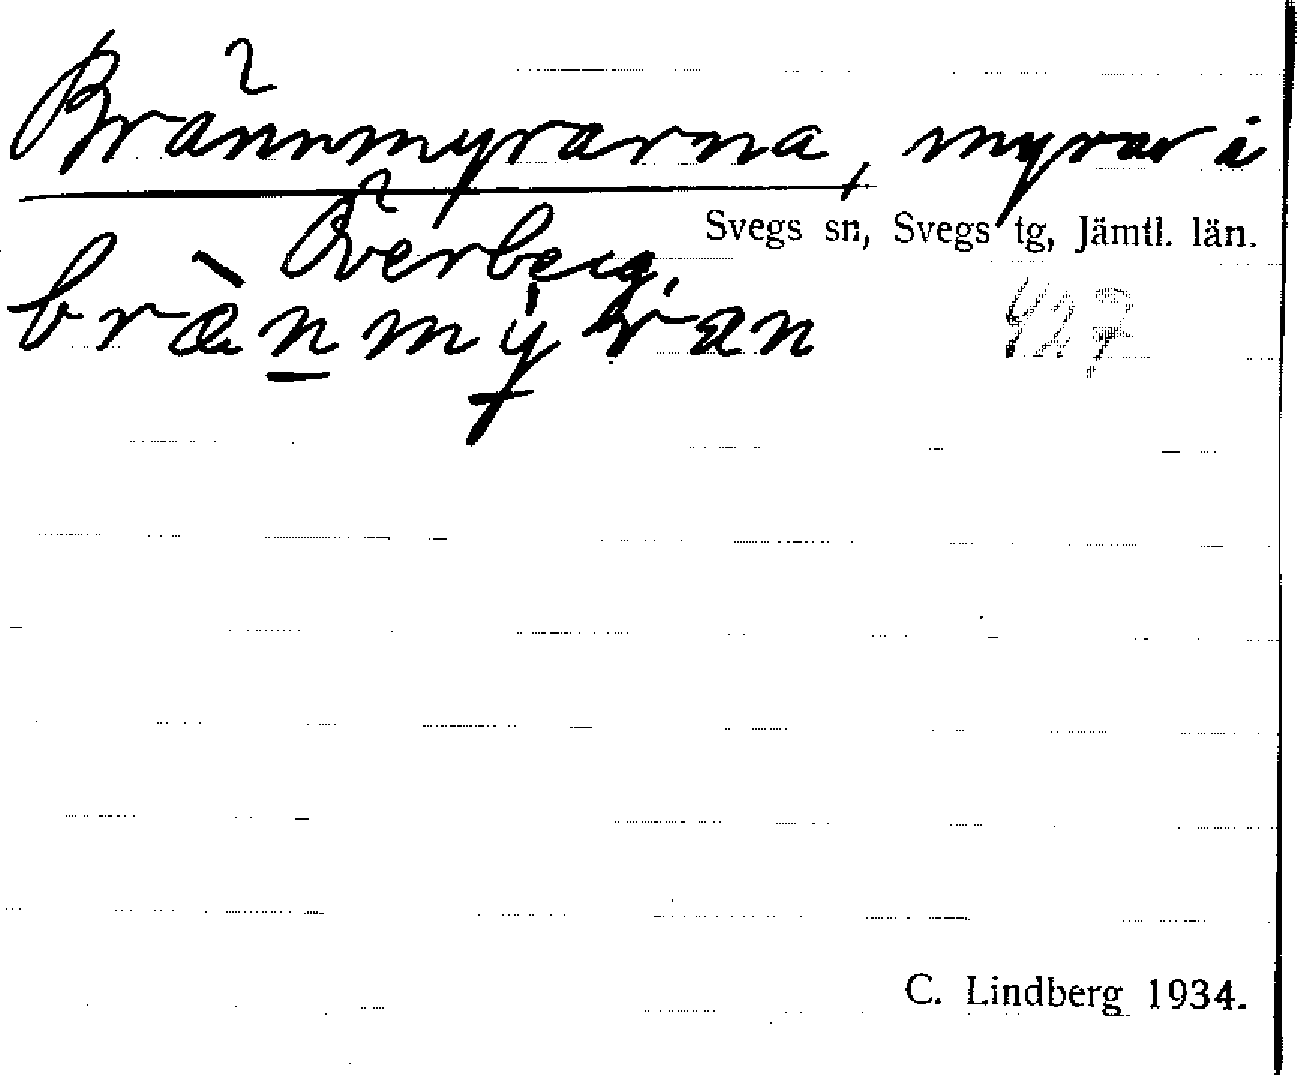 Brännmyrarna, myrar i
Överberg,
Svegs sn, Svegs tg, Jämtl. län.
bræ̀nmyran
427
C. Lindberg 1934.